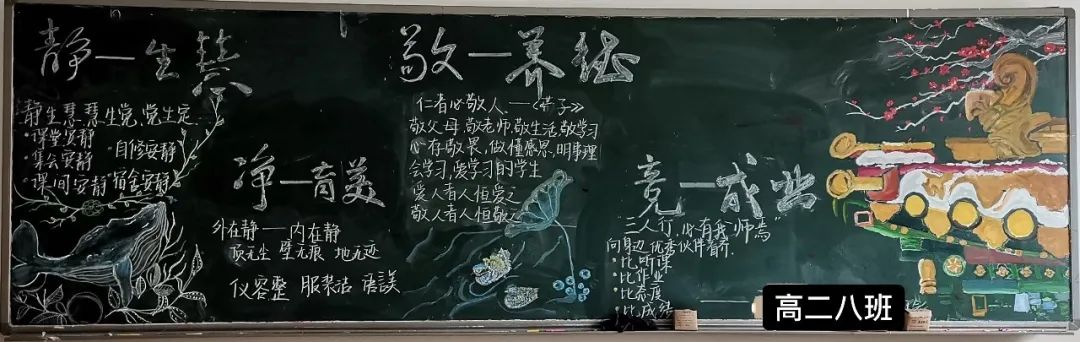 静一生慧
静生慧 慧生觉 觉生定
·课堂安静
·集会安静 ·自修安静
·课间安静 ·宿舍安静
敬一养德
仁者必敬人——《荀子》
敬父母 敬老师 敬生活 敬学习
心存敬畏,做懂感恩,明事理
会学习,爱学习的学生
爱人者人恒爱之
敬人者人恒敬之
净一育美
外在静——内在静
顶无尘 壁无痕 地无迹
仪容整 服装洁
竞一成业
三人行,必有我师焉
向身边优秀伙伴看齐.
·比听课
·比作业
·比态度
·比成绩
高二八班